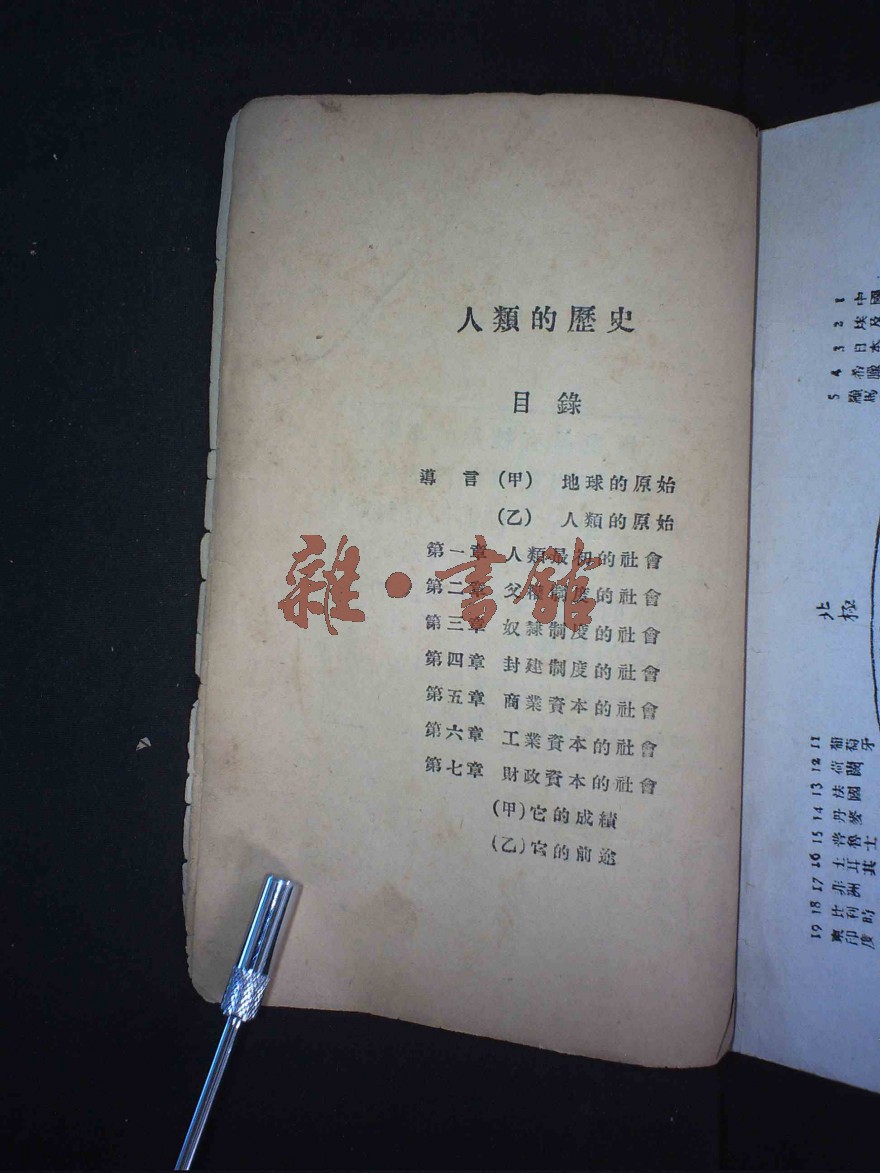 人類的歷史
目錄
導言 (甲) 地球的原始
(乙) 人類的原始
第一章 人類最初的社會
第二章 父權制度的社會
第三章 奴隸制度的社會
第四章 封建制度的社會
第五章 商業資本的社會
第六章 工業資本的社會
第七章 財政資本的社會
(甲)它的成績
(乙)它的前途
雜·書館
1 中國
2 埃及
3 日本
4 希臘
5 羅馬
北極
11 葡萄牙
12 荷蘭
13 法國
14 丹麥
15 普魯士
16 土耳其
17 非洲
18 比利時
19 東印度